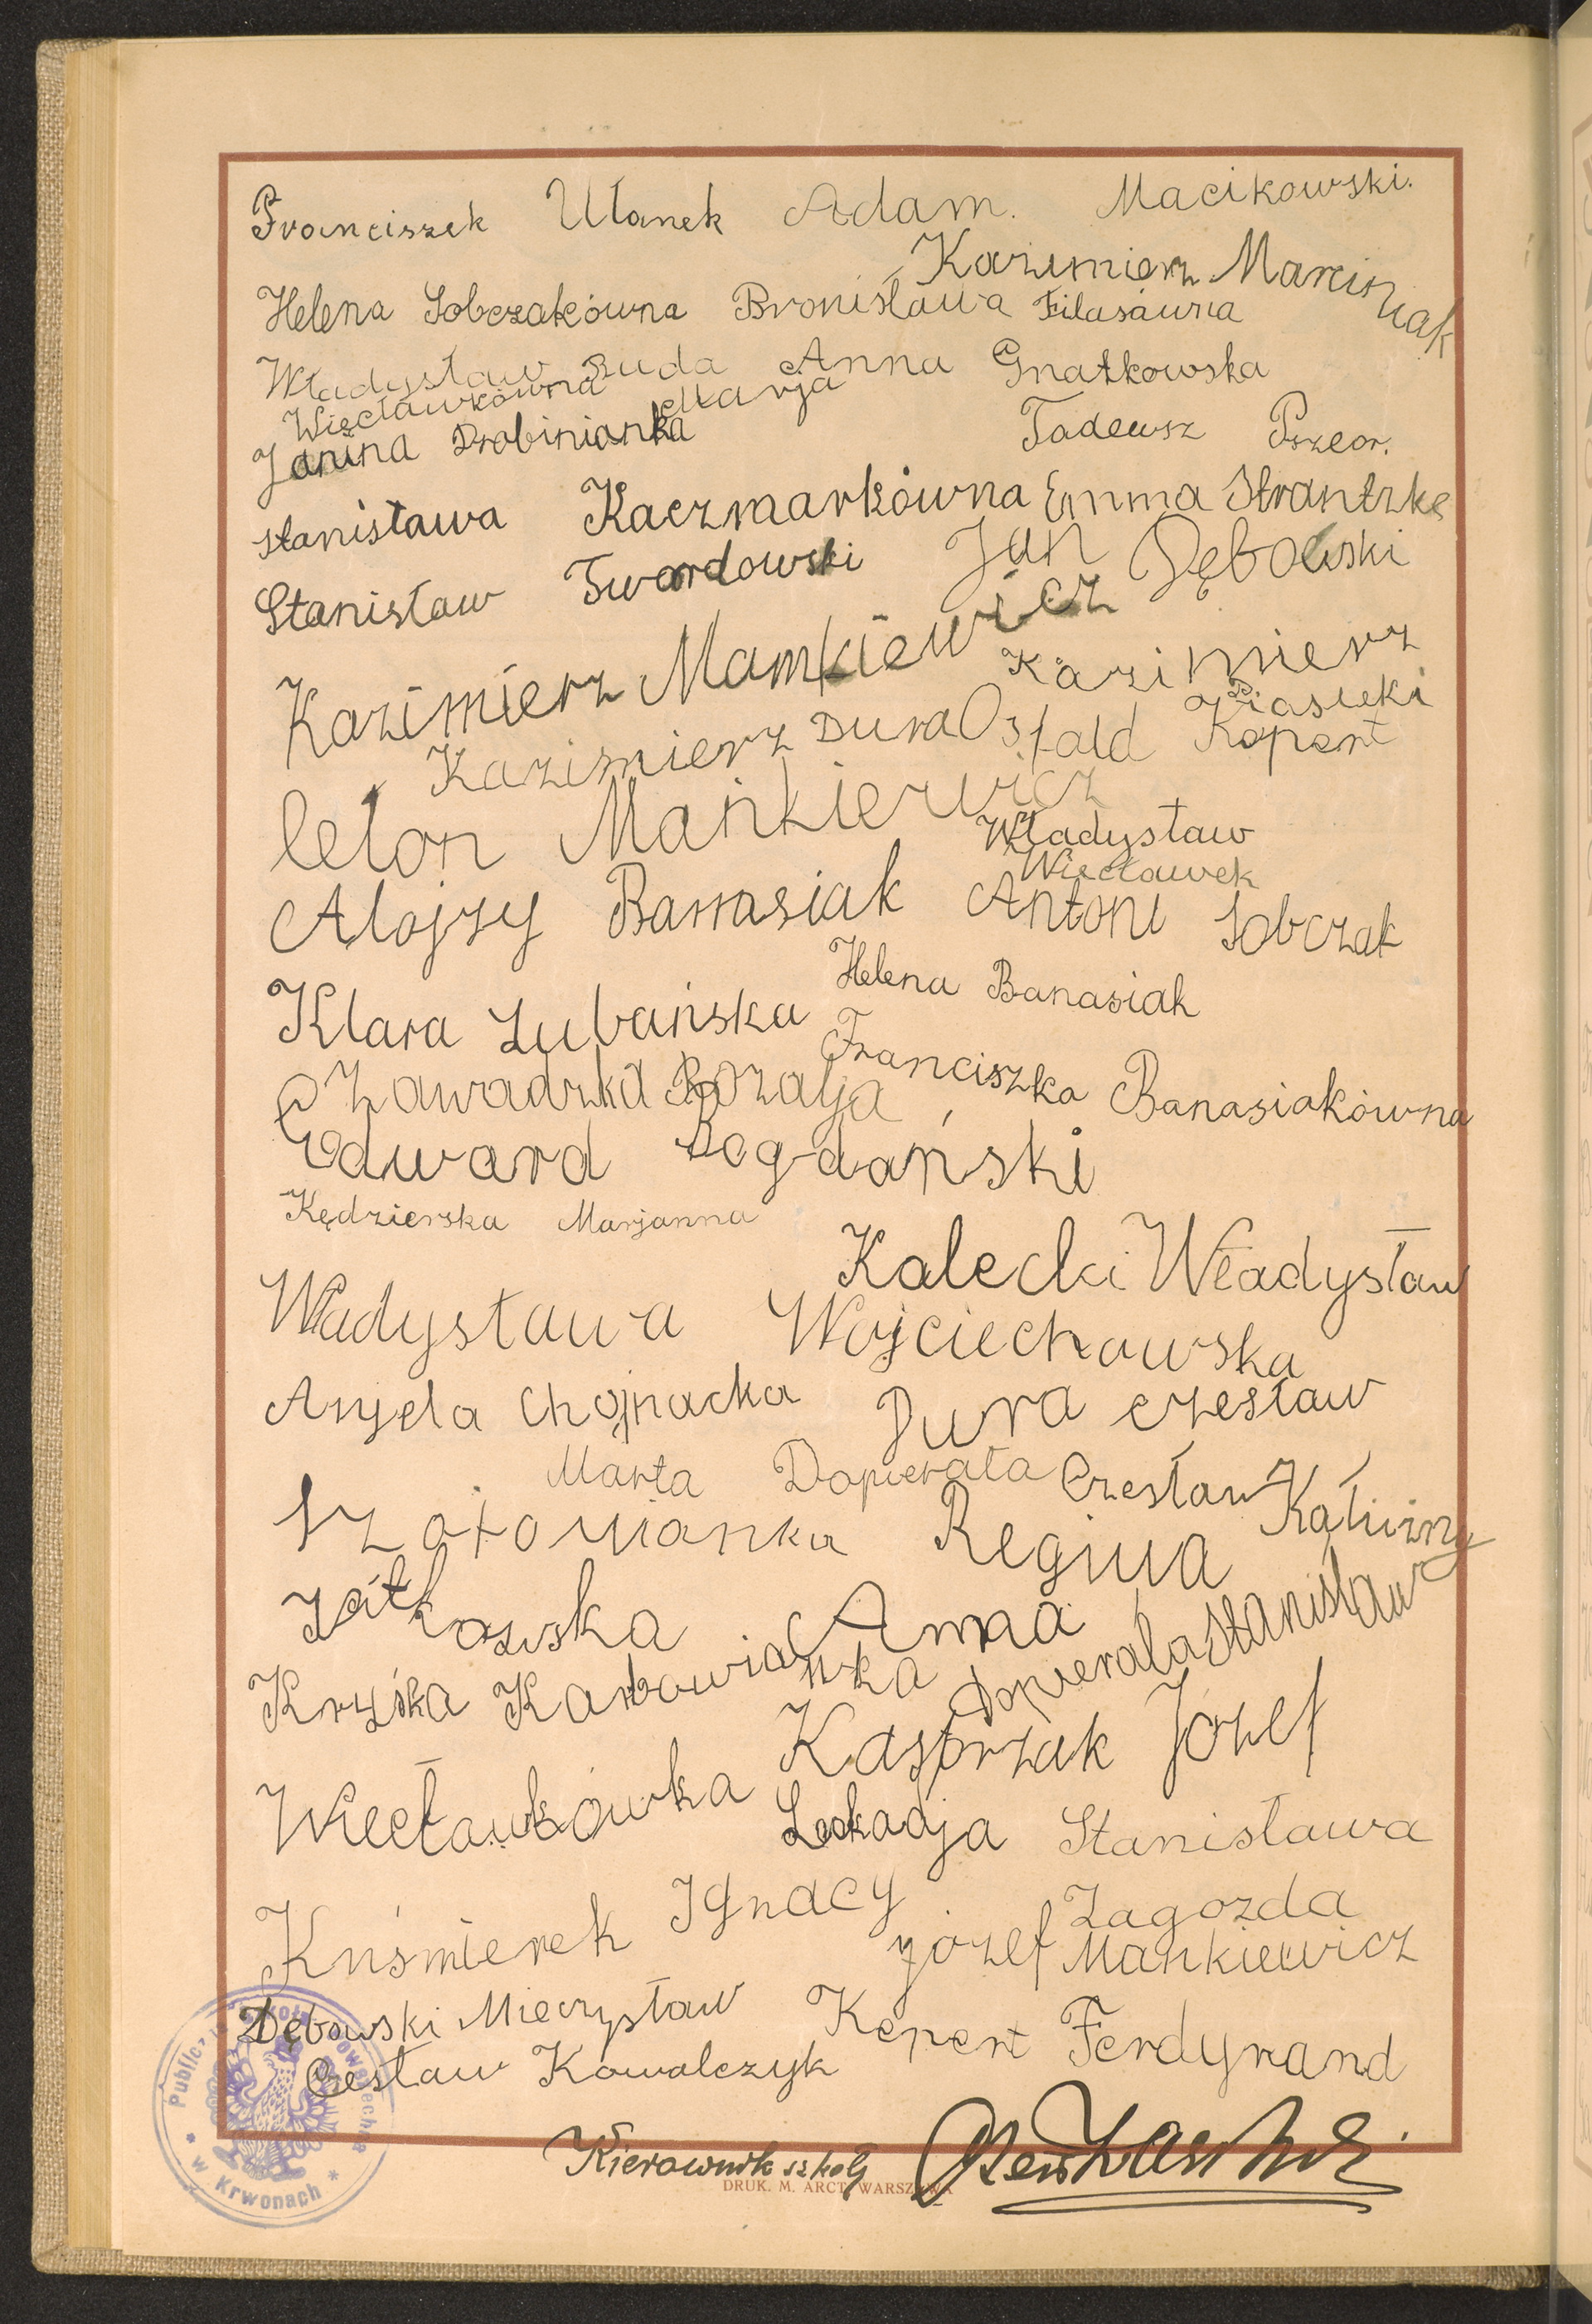 Franciszek Ulanek Adam. Macikowski.
Kazimierz Marciniak
Helena Sobczakówna Bronisława Filasówna
Władysław Duda Anna Gnatkowska
Więcławkówna Marja
Janina Drobinianka Tadeusz Pszeor.
Stanisława Kaczmarkówna Emma Strantzke
Stanisław Twardowski Jan Dębowski
Kazimierz Mamkiewicz Kazimierz Piasecki
Kazimierz Dura Osfald Kopert
leton Mańkiewicz
Władysław Więcławek
Alojzy Banasiak Antoni Sobczak
Helena Banasiak
Klara Lubańska
Franciszka Banasiakówna
Zawadzka Rozalja
Edward Bogdański
Kędzierska Marjanna
Kalecki Władysław
Władysława Wojciechowska
Anjela Chojnacka Dura Czesław
Marta Dopierała Czesław Kałużny
Regina
Zátkowska Anna
Kryśka Karbowianka Dopierała Stanisław
Kasprzak Józef
Więcławkówka Leokadja Stanisława Zagozda
Kuśmierek Ignacy
Józef Mankiewicz
Dębowski Mieczysław Kepert Ferdynand
Czesław Kowalczyk
Kierownik szkoły
DRUK. M. ARCT, WARSZAWA
Publiczna Szkoła Powszechna * w Krwonach *